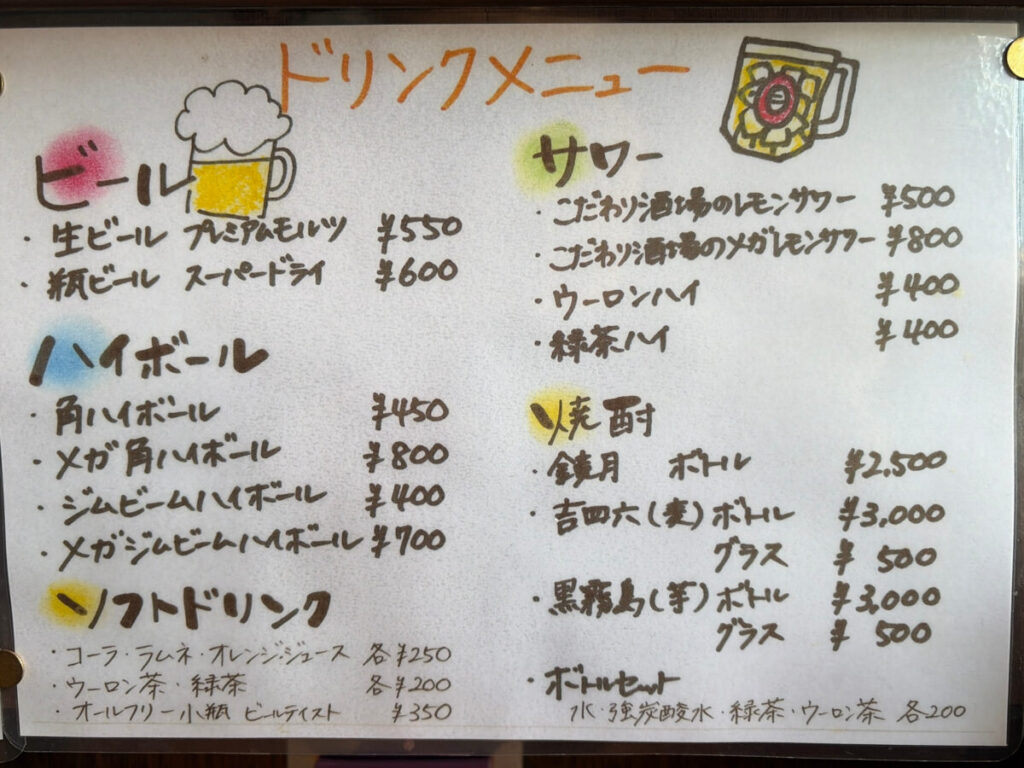 ドリンクメニュー
ビール
・生ビール プレミアムモルツ ¥550
・瓶ビール スーパードライ ¥600
ハイボール
・角ハイボール ¥450
・メガ角ハイボール ¥800
・ジムビームハイボール ¥400
・メガジムビームハイボール ¥700
ソフトドリンク
・コーラ・ラムネ・オレンジジュース 各¥250
・ウーロン茶・緑茶 各¥200
・オールフリー小瓶 ビールテイスト ¥350
サワー
・こだわり酒場のレモンサワー ¥500
・こだわり酒場のメガレモンサワー ¥800
・ウーロンハイ ¥400
・緑茶ハイ ¥400
焼酎
・鏡月 ボトル ¥2,500
・吉四六(麦)ボトル ¥3,000
グラス ¥500
・黒霧島(芋)ボトル ¥3,000
グラス ¥500
・ボトルセット
水・強炭酸水・緑茶・ウーロン茶 各200